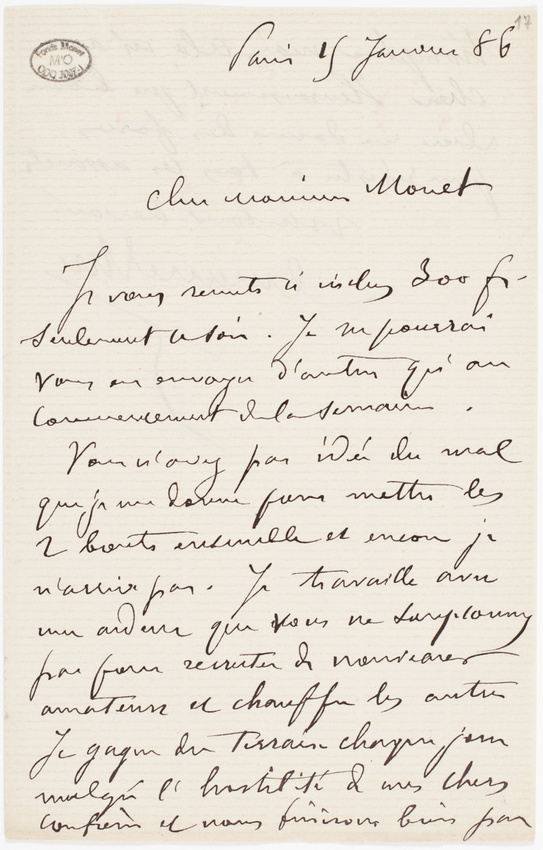 17
Fonds Monet
M'O
DON 2001
Paris 15 Janvier 86
Cher monsieur Monet
Je vous remets ci inclus 300 fr
seulement ce soir. Je ne pourrai
vous en envoyer d'autres qu'au
commencement de la semaine.
Vous n'avez pas idée du mal
que je me donne pour mettre les
2 bouts ensemble et encore je
n'arrive pas. Je travaille avec
une ardeur que vous ne soupçonnez
pas pour recruter de nouveaux
amateurs et chauffer les autres
Je gagne du terrain chaque jour
malgré l'hostilité de mes chers
confrères et nous finirons bien par